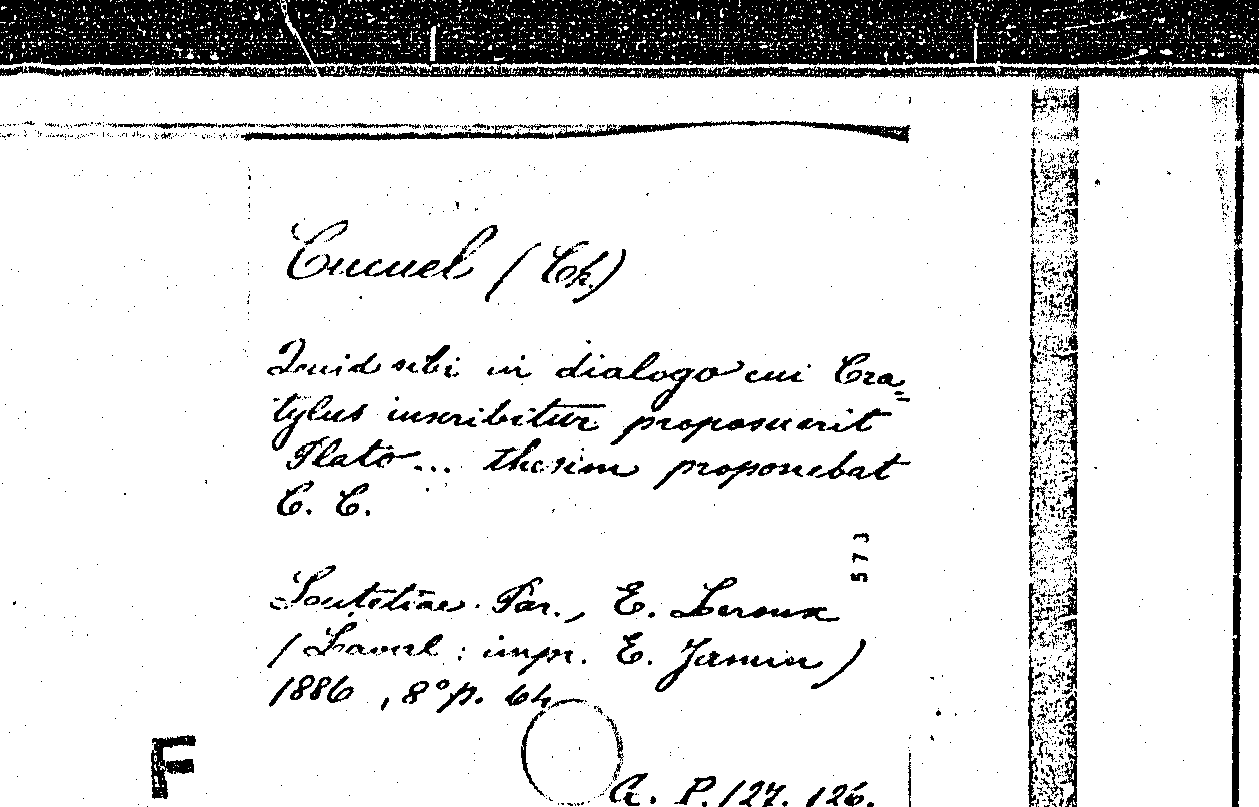 Cucuel (Ch)
Quid sibi in dialogo cui Cra=
tylus inscribitur proposuerit
Plato... thesim proponebat
C. C.
573
Lutetiae Par., E. Leroux
(Laval : impr. E. Jamin)
1886, 8° p. 64
F
A. P. 127. 126.